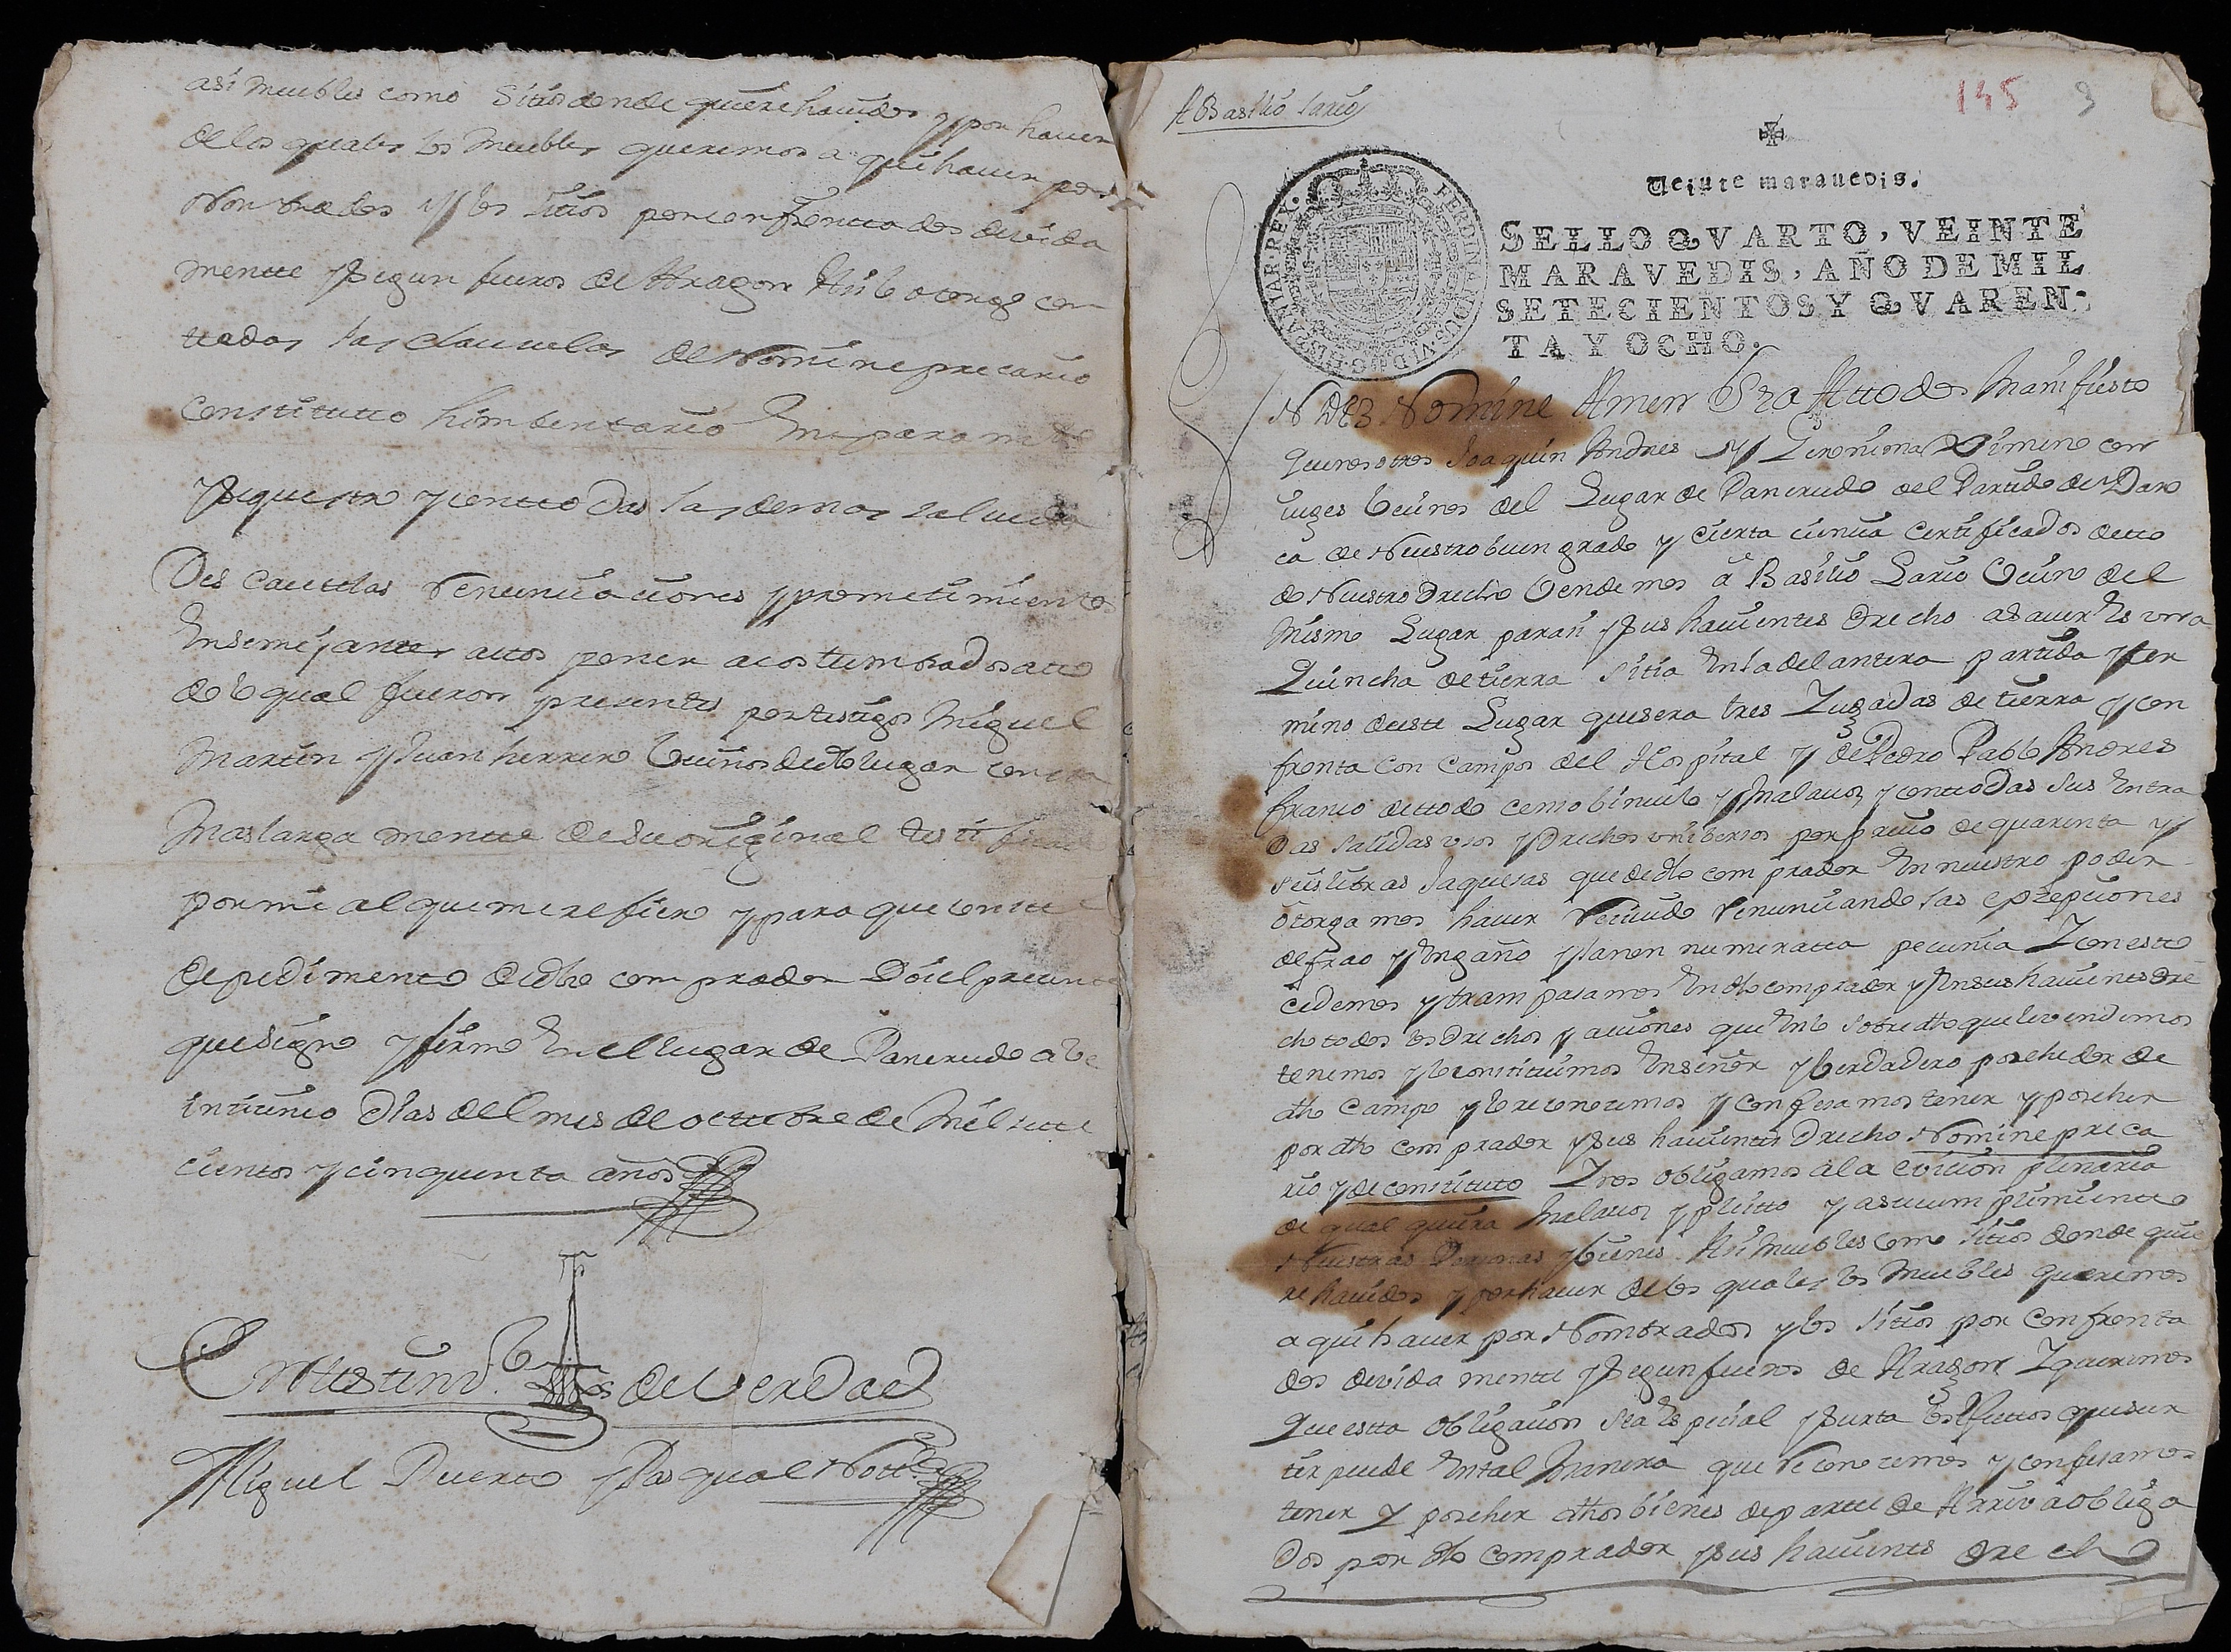 asi muebles como Sitios donde quiere havidos y por haver
de los quales los Muebles queremos a qui haver por
Nonbrados y los sitios por confrontados devida
mente y segun fueros de Aragon Asi lo otorgo con
todas las clausulas de Nomine precario
constituto himbentario Emparamento
y sequestro y con todas las demas saluda
des cautelas Renunciaciones y prometimientos
En semejantes actos poner acostumbrados a tto
do lo qual fueron presentes por testigos Miguel
Martin y Juan herrero Vecinos de dho lugar consta
mas larga mente de su original testificado
por mi al que me refiero y para que conste
de pedimento de dho comprador Doi el presente
que signo y firmo En el lugar de Pancrudo a ve
inticinco dias del mes de octubre de Mil sete
cientos y cinquenta años
En testimo. de Verdad
Miguel Duerto y Pasqual Notto.
A Basilio Lario
145 9
Veinte maravedis.
HISPANIAR. REX. FERDINANDUS. VI. D. G.
SELLO QVARTO, VEINTE
MARAVEDIS, AÑO DE MIL
SETECIENTOS Y QVAREN-
TA Y OCHO.
N Dei Nomine Amen Sea Atodos Manifiesto
que nosotros Joaquin Andres y Geronima Ximeno con
iuges Vecinos del Lugar de Pancrudo del Partido de Daro
ca de Nuestro buen grado y cierta ciencia certificados de tto
do Nuestro drecho Vendemos a Basilio Lario Vecino del
mismo Lugar para si y sus havientes drecho a saver Es una
Quincha de tierra sitia En la delantera partida y ter
mino de este Lugar que sera tres Yugadas de tierra y con
frenta con campos del Hospital y de Pedro Pablo Andres
franco de ttodo censo binculo y Mala voz y con todas sus Entra
das salidas usos y drechos unibersos por precio de quarenta y
seis libras Jaquesas que de dho comprador En nuestro poder
otorgamos haver Recivido Renunciando las eszepciones
de frao y Engaño y la non numerata pecunia Y con esto
cedemos y trampasamos En dho comprador y En sus havientes dre
cho todos los drechos y acciones que En lo sobredho que le vendemos
tenemos y lo constituimos En señor y Verdadero posehedor de
dho campo y lo reconocemos y confesamos tener y poseher
por dho comprador y sus havientes drecho Nomine preca
rio y de constituto Y nos obligamos a la evicion plenaria
de qual quiera mala voz y pleitto y a su cumplimiento
Nuestras Personas y bienes Asi muebles como sitios donde quie
re havidos y por haver de los quales los muebles queremos
a qui haver por Nombrados y los sitios por confronta
dos devida mente y segun fueros de Aragon Y queremos
Que estta obligacion sea Especial y surta los efectos que sur
tir puede En tal Manera que Reconocemos y confesamos
tener y poseher dhos bienes de parte de Arriva obliga
dos por dho comprador y sus havientes drecho